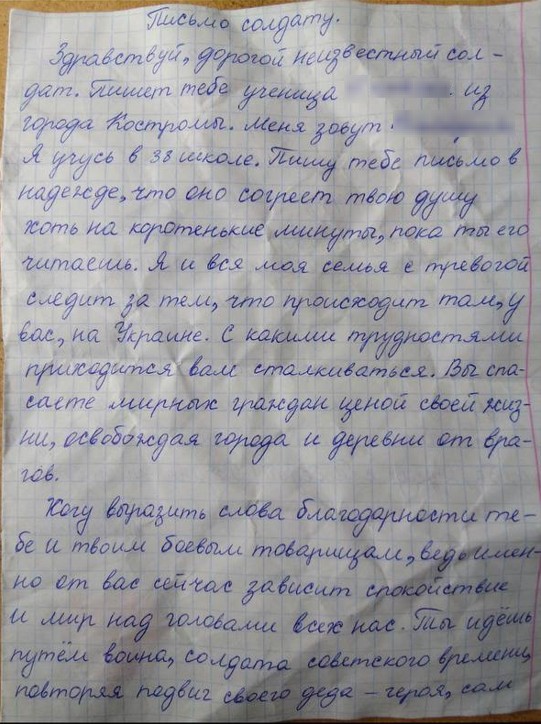 Письмо солдату.
Здравствуй, дорогой неизвестный сол-
дат. Пишет тебе ученица из
города Костромы. Меня зовут
Я учусь в 38 школе. Пишу тебе письмо в
надежде, что оно согреет твою душу
хоть на коротенькие минуты, пока ты его
читаешь. Я и вся моя семья с тревогой
следит за тем, что происходит там, у
вас, на Украине. С какими трудностями
приходится вам сталкиваться. Вы спа-
саете мирных граждан ценой своей жиз-
ни, освобождая города и деревни от вра-
гов.
Хочу выразить слова благодарности те-
бе и твоим боевым товарищам, ведь имен-
но от вас сейчас зависит спокойствие
и мир над головами всех нас. Ты идёшь
путём воина, солдата советского времени,
повторяя подвиг своего деда – героя, сам